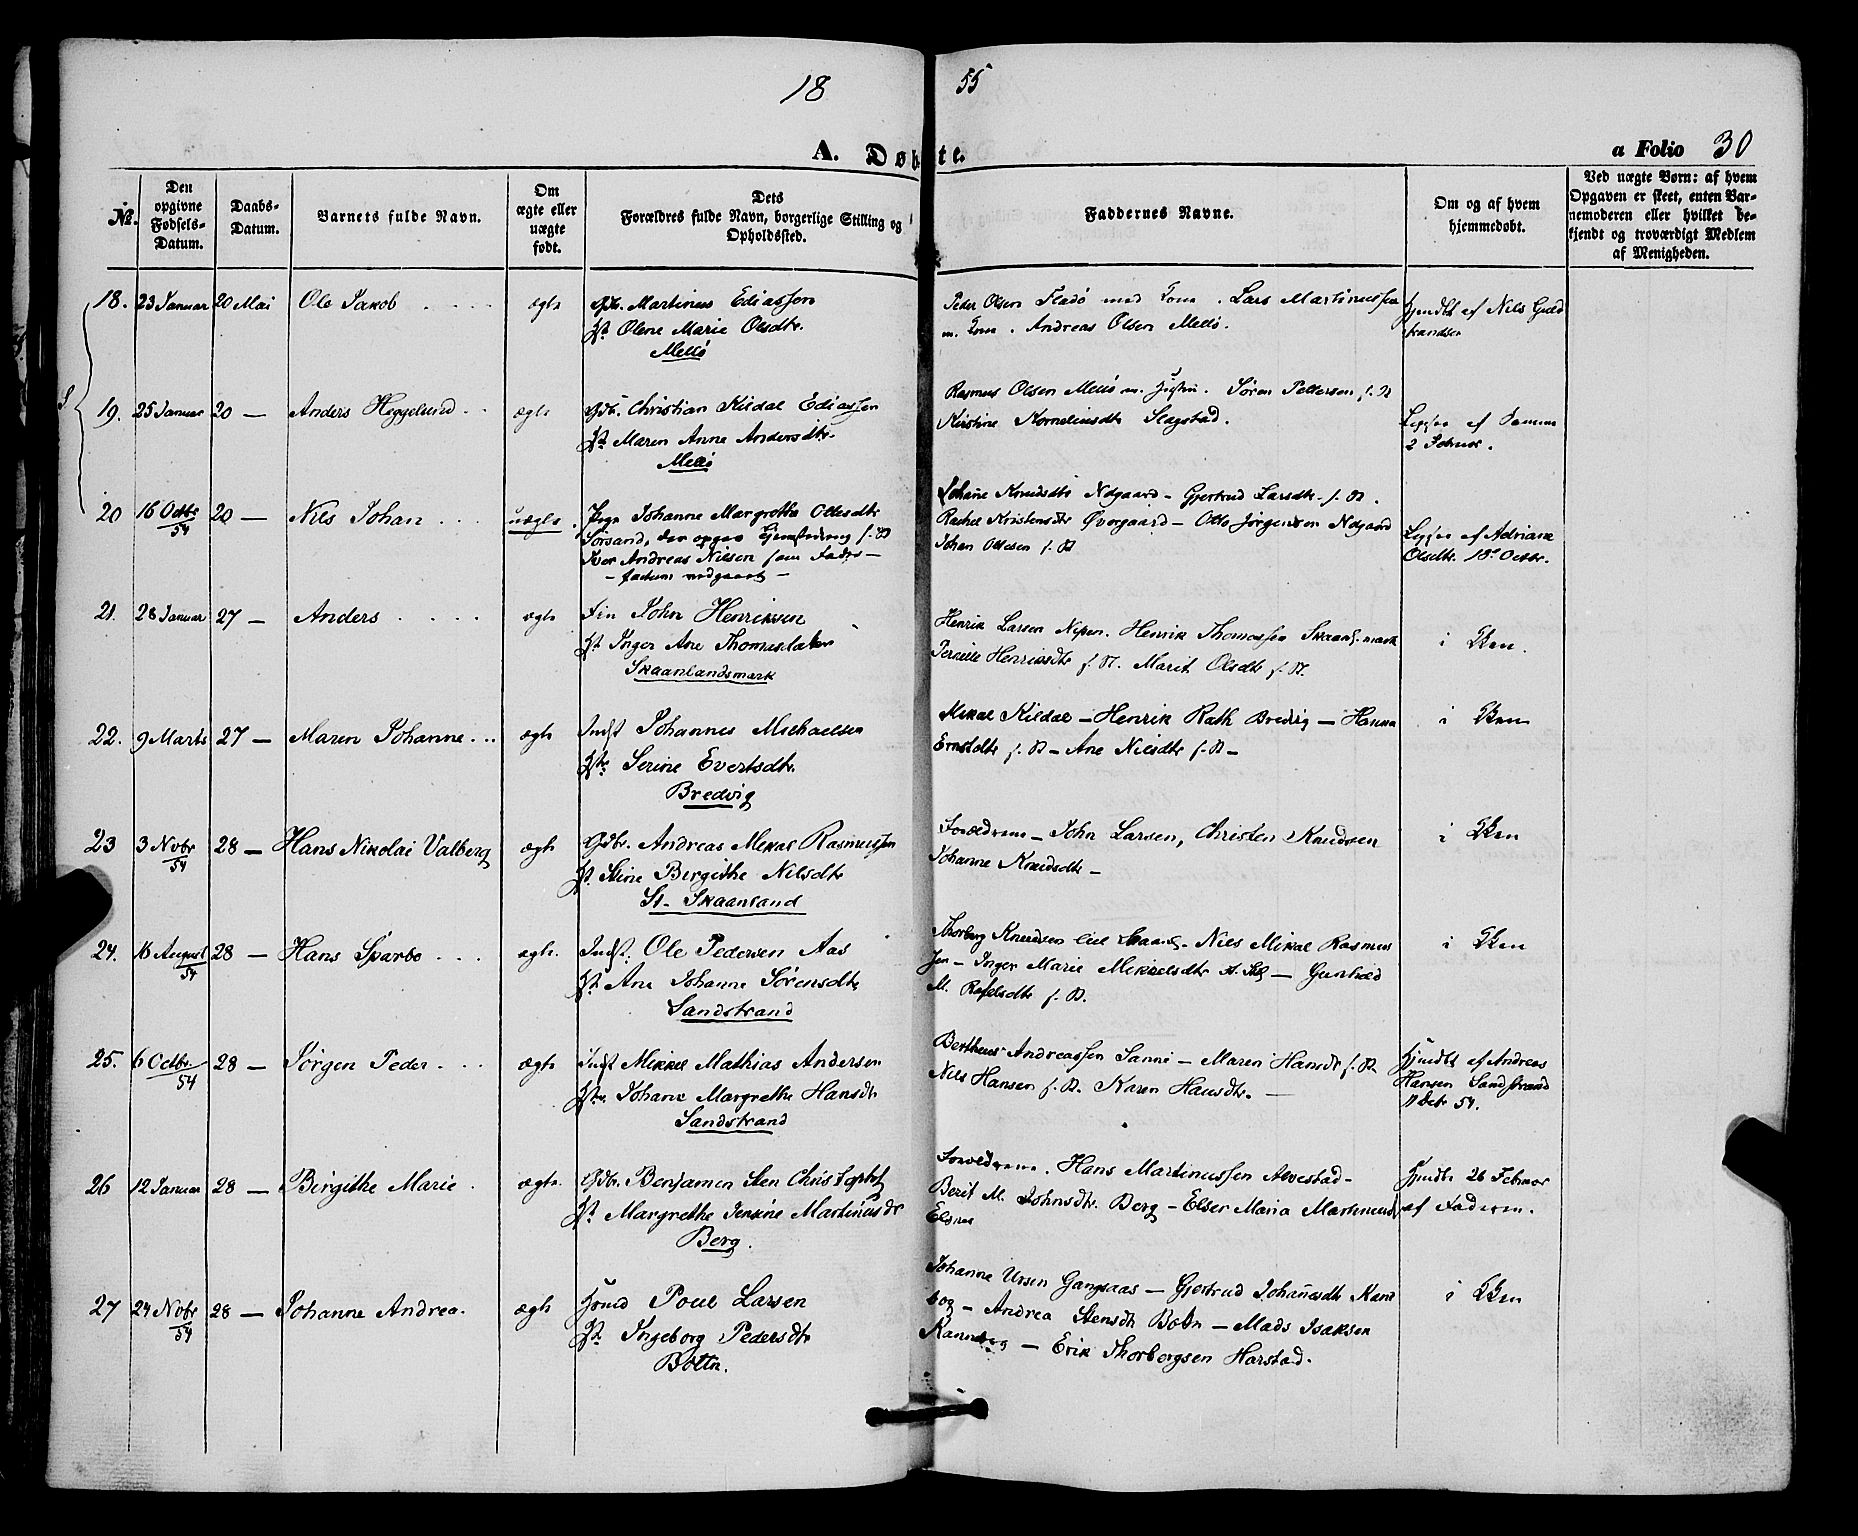 18 55
A. Døbte. a Folio 30
No. Den opgivne Fødsels-Datum. Daabs-Datum. Barnets fulde Navn. Om ægte eller uægte født. Dets Forældres fulde Navn, borgerlige Stilling og Opholdssted. Faddernes Navne. Om og af hvem hjemmedøbt. Ved uægte Børn: af hvem Opgaven er skeet, enten Barnemoderen eller hvilket bekjendt og troværdigt Medlem af Menigheden.
18. 23 Januar 20 Mai Ole Jakob ægte Gdbr. Martinus Ediassen
Olene Marie Olsdtr.
Melø
Peder Olsen Fladø med Kone. Lars Martinussen
m. Kone. Andreas Olsen Melø.
Hjmdbt af Nils Guld
brandsen
19. 25 Januar 20 — Anders Heggelund ægte Gdb. Christian Kildal Ediassen
Maren Anne Andersdtr.
Melø
Rasmus Olsen Melø m. Hustru. Søren Pettersen f. B
Kirstine Korneliusdtr Slagstad.
af Samme
2 Februar.
20 16 Octbr 54 20 — Nils Johan uægte. Pige Johanne Margrethe Ottesdtr
Sørsand, der opgav f. B
Iver Andreas Nilsen som Fader —
Johane Knudsdtr Ndgaard — Gjertrud Larsdtr. f. B.
Rachel Kristensdtr Øvergaard — Otto Jørgensen Ndgaard
Johan Ottesen f. B
af Adriane
Olsdtr. 18de Octbr.
21. 28 Januar 27 — Anders ægte Fin John Henriksen
Inger Ane Thomasdatter
Skaanlandsmark
Henrik Larsen Nipen. Henrik Thomassen Skaanl.mark
Pernille Henriksdtr f. B. Marit Olsdtr f. B.
i Kken.
22. 9 Marts 27 — Maren Johanne ægte Indst Johannes Michaelsen
Serine Evertsdtr.
Bredvig
Mikal Kildal — Henrik Rath Bredvig — Hanna
Ernstdtr f. B — Ane Nilsdtr f. B —
i Kken
23 3 Novbr 54 28 — Hans Nikolai Valberg ægte Gdbr. Andreas Mikal Rasmussen
Stine Bergithe Nilsdtr
St. Skaanland
Forældrene — John Larsen, Christen Knudsen
Johanne Knudsdtr —
i Kken
24. 16 August 54 28 — Hans Sparbo ægte. Indst. Ole Pedersen Aas
Ane Johanne Sørensdtr
Sandstrand
Thorberg Knudsen Lill Skaanl. Nils Mikal Rasmus
sen — Inger Marie Mikkelsdtr — Gunhild
M. Rafelsdtr f. B.
i Kken
25. 6 Octbr 54 28 — Jørgen Peder ægte Indst Mikkel Mathias Andersen
Johane Margrethe Hansdtr
Sandstrand
Bertheus Andreassen Sanni — Maren Hansdtr f. B
Nils Hansen f. B. Karen Hansdtr. —
Hjmdbt af Andreas
Hansen Sandstrand
54.
26 12 Januar 28 — Birgithe Marie ægte. Gdbr. Benjamin Sten Christophs
Margrethe Jensine Martinusdtr
Berg.
Forældrene. Hans Martinussen Alvestad —
Berit M. Johnsdtr. Berg — Elser Maria Martinusd
Elgsnes
Hjmdbt 26 Februar
af Faderen.
27 24 Novbr 54 28 — Johanne Andrea ægte Poul Larsen
Ingeborg Pedersdtr
Bottn.
Johanne Ursin Gangsaas — Gjertrud Johansdtr Kane
bog — Andrea Stensdtr Botn — Mads Isaksen
Kannebog — Erik Thorbergsen Harstad.
i Kken